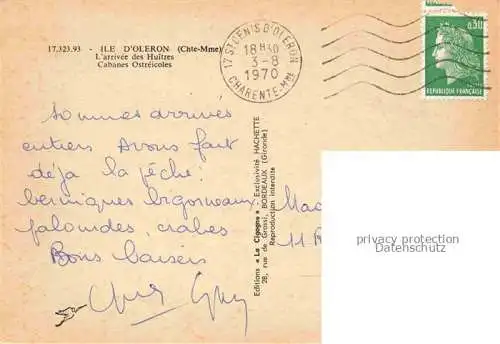 17.323.93 - ILE D'OLERON (Chte-Mme)
L'arrivée des Huîtres
Cabanes Ostréicoles
17 ST DENIS D'OLERON
18H30
3-8
1970
CHARENTE-MME
0,30
REPUBLIQUE FRANÇAISE
Sommes arrivés
entiers Avons fait
déja la pêche:
berniques bigorneaux,
palourdes, crabes
Bons baisers
Editions "La Cigogne". Exclusivité HACHETTE
28, rue de Grassi, BORDEAUX (Gironde)
Reproduction interdite
11
privacy protection
Datenschutz